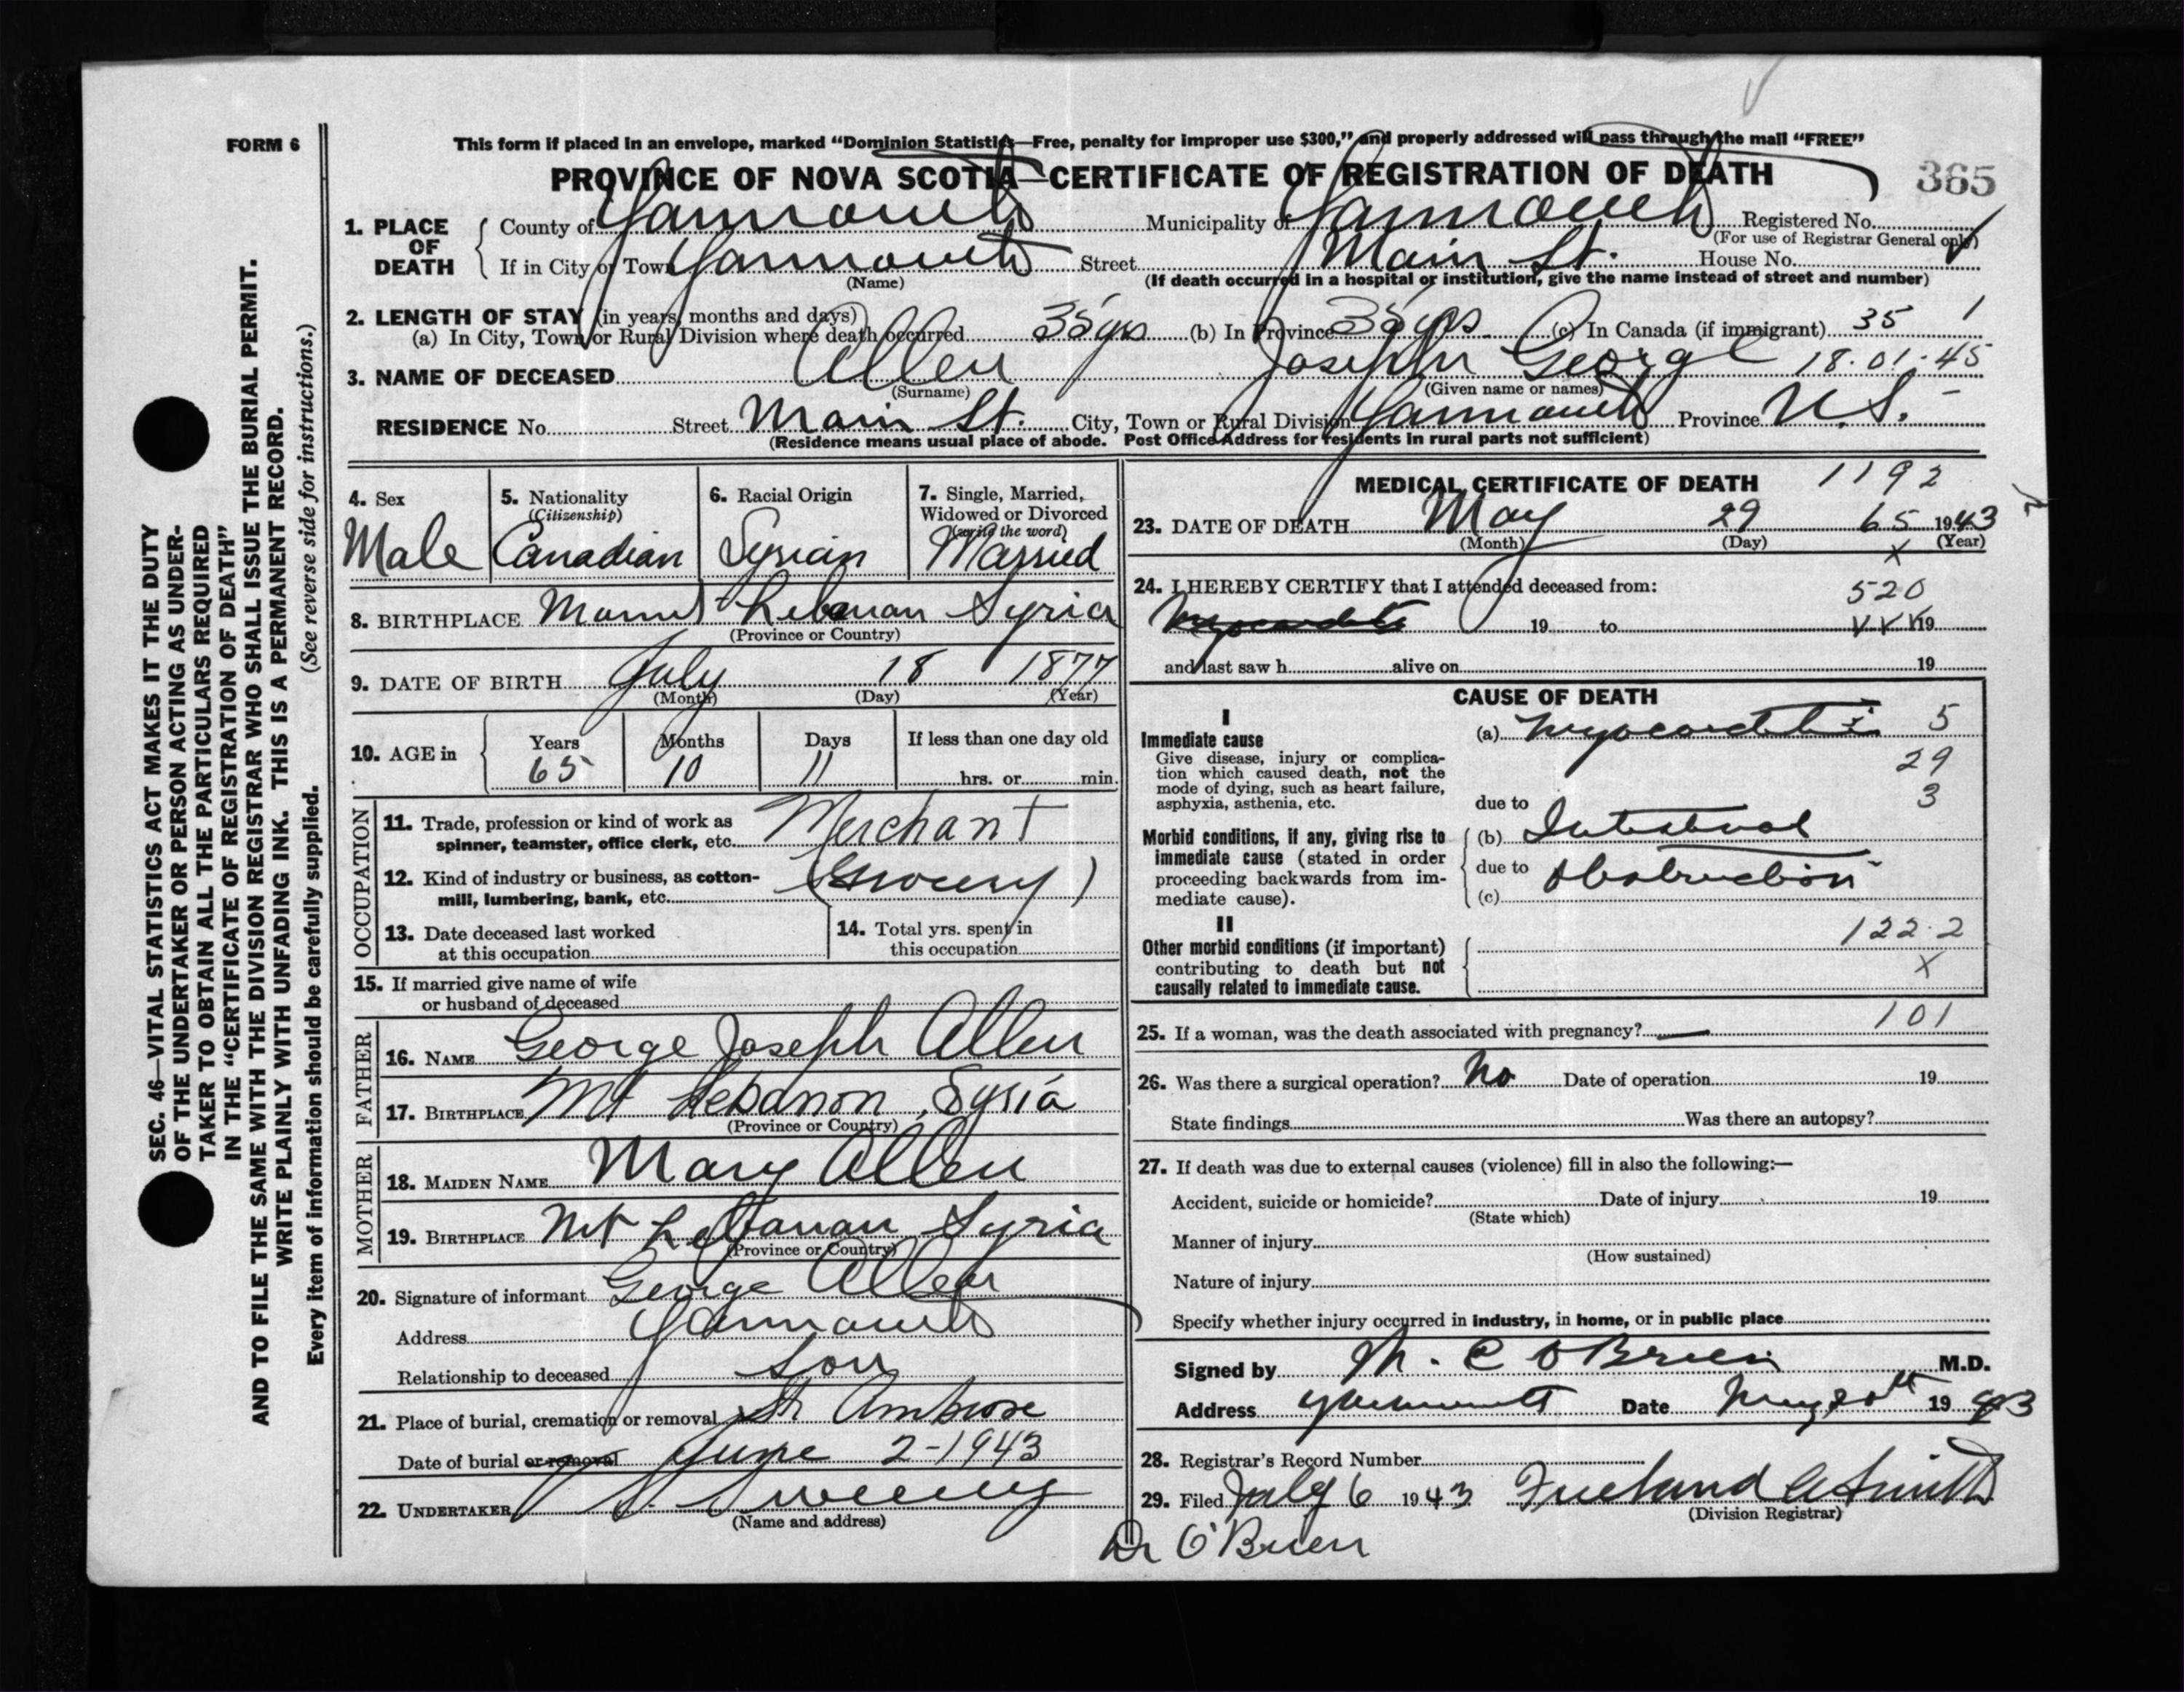 FORM 6
This form if placed in an envelope, marked "Dominion Statistics—Free, penalty for improper use $300," and properly addressed will pass through the mail "FREE"
PROVINCE OF NOVA SCOTIA—CERTIFICATE OF REGISTRATION OF DEATH
365
1. PLACE OF DEATH County of Yarmouth Municipality of Yarmouth Registered No.
(For use of Registrar General only)
If in City or Town Yarmouth Street Main St. House No.
(Name) (If death occurred in a hospital or institution, give the name instead of street and number)
2. LENGTH OF STAY (in years, months and days)
(a) In City, Town or Rural Division where death occurred 35 yrs (b) In Province 35 yrs (c) In Canada (if immigrant) 35 1
3. NAME OF DECEASED Allen Joseph George 18.01.45
(Surname) (Given name or names)
RESIDENCE No. Street Main St. City, Town or Rural Division Yarmouth Province N.S. -
(Residence means usual place of abode. Post Office Address for residents in rural parts not sufficient)
4. Sex
Male
5. Nationality
(Citizenship)
Canadian
6. Racial Origin
Syrian
7. Single, Married, Widowed or Divorced
(write the word)
Married
8. BIRTHPLACE Mount Lebanan Syria
(Province or Country)
9. DATE OF BIRTH July 18 1877
(Month) (Day) (Year)
10. AGE in Years Months Days If less than one day old
65 10 11 hrs. or min.
OCCUPATION
11. Trade, profession or kind of work as Merchant
spinner, teamster, office clerk, etc.
12. Kind of industry or business, as cotton- (Grocery)
mill, lumbering, bank, etc.
13. Date deceased last worked
at this occupation
14. Total yrs. spent in
this occupation
15. If married give name of wife
or husband of deceased
FATHER
16. NAME George Joseph Allen
17. BIRTHPLACE Mt Lebanon, Syria
(Province or Country)
MOTHER
18. MAIDEN NAME Mary Allen
19. BIRTHPLACE Mt Lebanan Syria
(Province or Country)
20. Signature of informant George Allen
Address Yarmouth
Relationship to deceased Son
21. Place of burial, cremation or removal St Ambrose
Date of burial or removal June 2-1943
22. UNDERTAKER V. S. Sweeny
(Name and address)
MEDICAL CERTIFICATE OF DEATH 1192
23. DATE OF DEATH May 29 65 1943
(Month) (Day) (Year)
x
24. I HEREBY CERTIFY that I attended deceased from: 520
Myocarditis 19 to 19
and last saw h alive on 19
CAUSE OF DEATH
I
Immediate cause
Give disease, injury or complica-
tion which caused death, not the
mode of dying, such as heart failure,
asphyxia, asthenia, etc.
(a) Myocarditis 5
29
3
due to
Morbid conditions, if any, giving rise to
immediate cause (stated in order
proceeding backwards from im-
mediate cause).
(b) Intestinal
due to Obstruction
(c)
II
Other morbid conditions (if important)
contributing to death but not
causally related to immediate cause.
122.2
x
25. If a woman, was the death associated with pregnancy? — 101
26. Was there a surgical operation? No Date of operation 19
State findings Was there an autopsy?
27. If death was due to external causes (violence) fill in also the following:—
Accident, suicide or homicide? Date of injury 19
(State which)
Manner of injury
(How sustained)
Nature of injury
Specify whether injury occurred in industry, in home, or in public place
Signed by M. C O'Brien M.D.
Address Yarmouth Date 1943
28. Registrar's Record Number
29. Filed July 6 1943 Freeland A Smith
(Division Registrar)
Dr O'Brien
SEC. 46—VITAL STATISTICS ACT MAKES IT THE DUTY
OF THE UNDERTAKER OR PERSON ACTING AS UNDER-
TAKER TO OBTAIN ALL THE PARTICULARS REQUIRED
IN THE "CERTIFICATE OF REGISTRATION OF DEATH"
AND TO FILE THE SAME WITH THE DIVISION REGISTRAR WHO SHALL ISSUE THE BURIAL PERMIT.
WRITE PLAINLY WITH UNFADING INK. THIS IS A PERMANENT RECORD.
Every item of information should be carefully supplied. (See reverse side for instructions.)